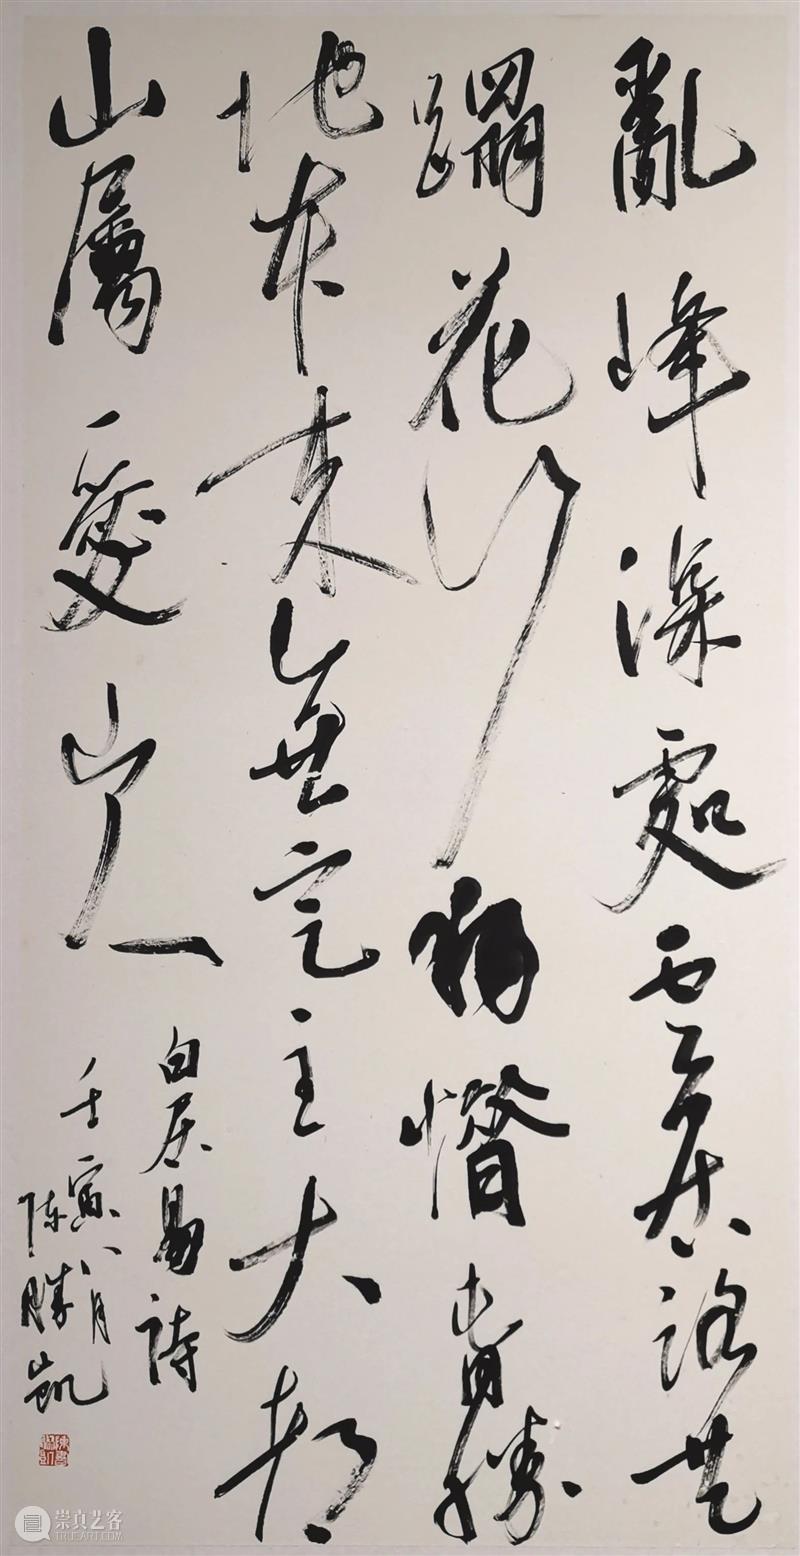 亂峰深處雲居路共
蹋花行獨惜春勝
地本来無定主大都
山屬愛山人
白居易詩
壬寅八月
陈勝凱
崇真艺客